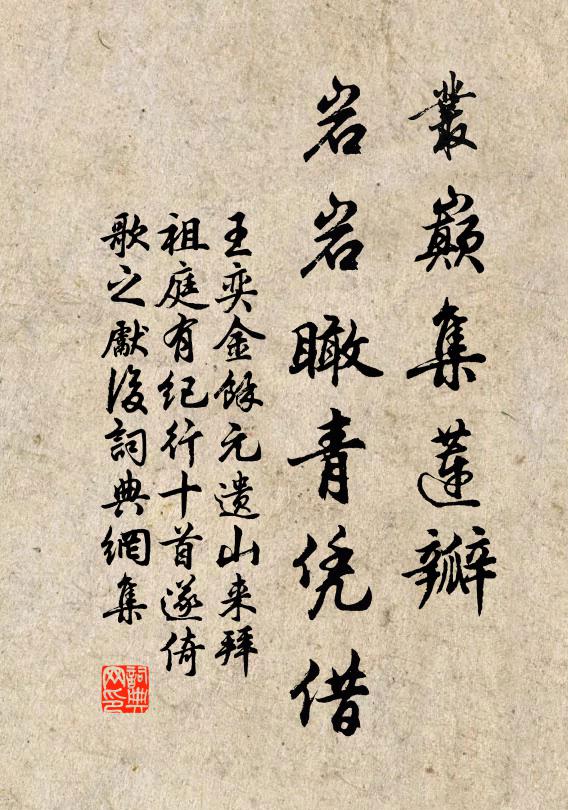 叢巔集蓮瓣
岩岩瞰青凭借
王奕金餘元遺山来拜
祖庭有紀行十首遂倚
歌之獻後詞典網集
詞典
网印